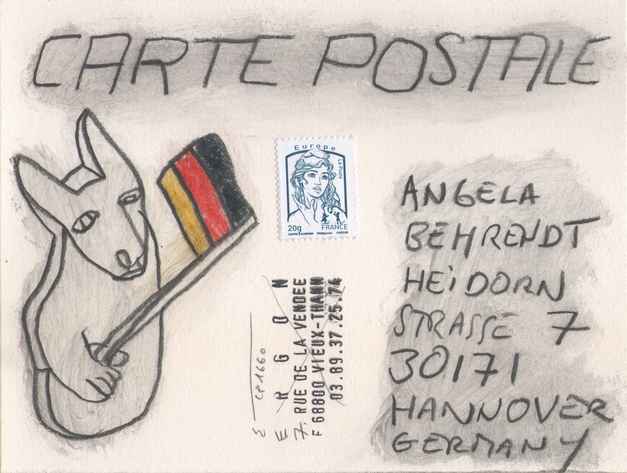 CARTE POSTALE
Europe
La Poste
20g
FRANCE
ANGELA
BEHRENDT
HEiDORN
STRASSE 7
30171
HANNOVER
GERMANY
E R G O N
7. RUE DE LA VENDEE
F 68800 VIEUX-THANN
03.89.37.25.74